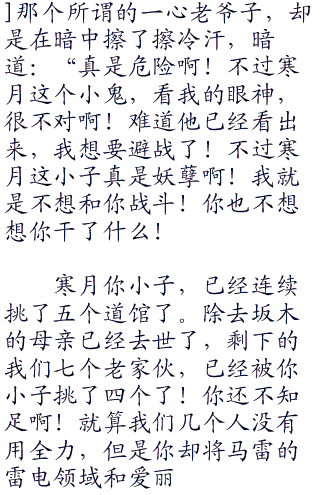 ]那个所谓的一心老爷子，却
是在暗中擦了擦冷汗，暗
道：“真是危险啊！不过寒
月这个小鬼，看我的眼神，
很不对啊！难道他已经看出
来，我想要避战了！不过寒
月这小子真是妖孽啊！我就
是不想和你战斗！你也不想
想你干了什么！
寒月你小子，已经连续
挑了五个道馆了。除去坂木
的母亲已经去世了，剩下的
我们七个老家伙，已经被你
小子挑了四个了！你还不知
足啊！就算我们几个人没有
用全力，但是你却将马雷的
雷电领域和爱丽